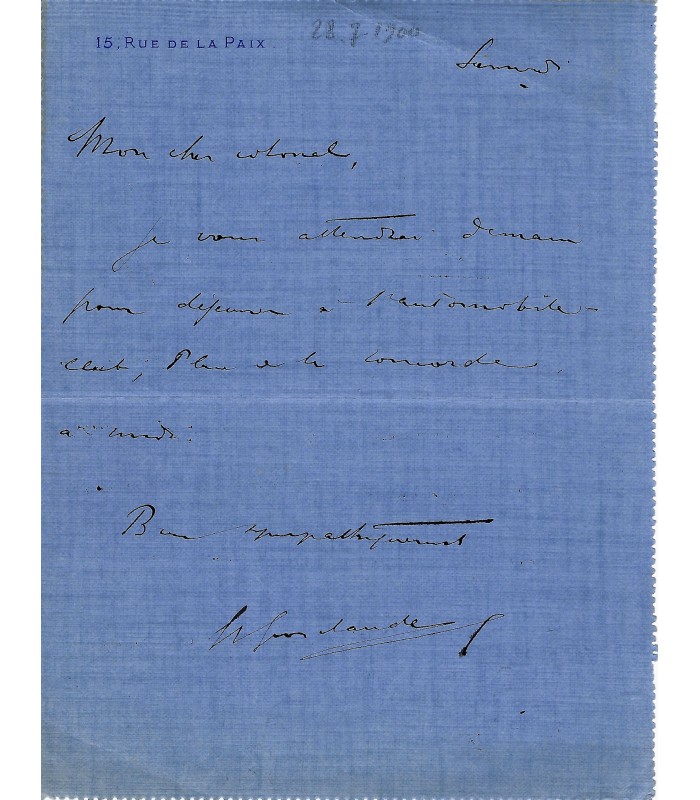 15, RUE DE LA PAIX
28.7.1900
Samedi
Mon cher colonel,
je vous attendrai demain
pour déjeuner à l'automobile-
club, Place de la Concorde
à midi.
Bien sympathiquement